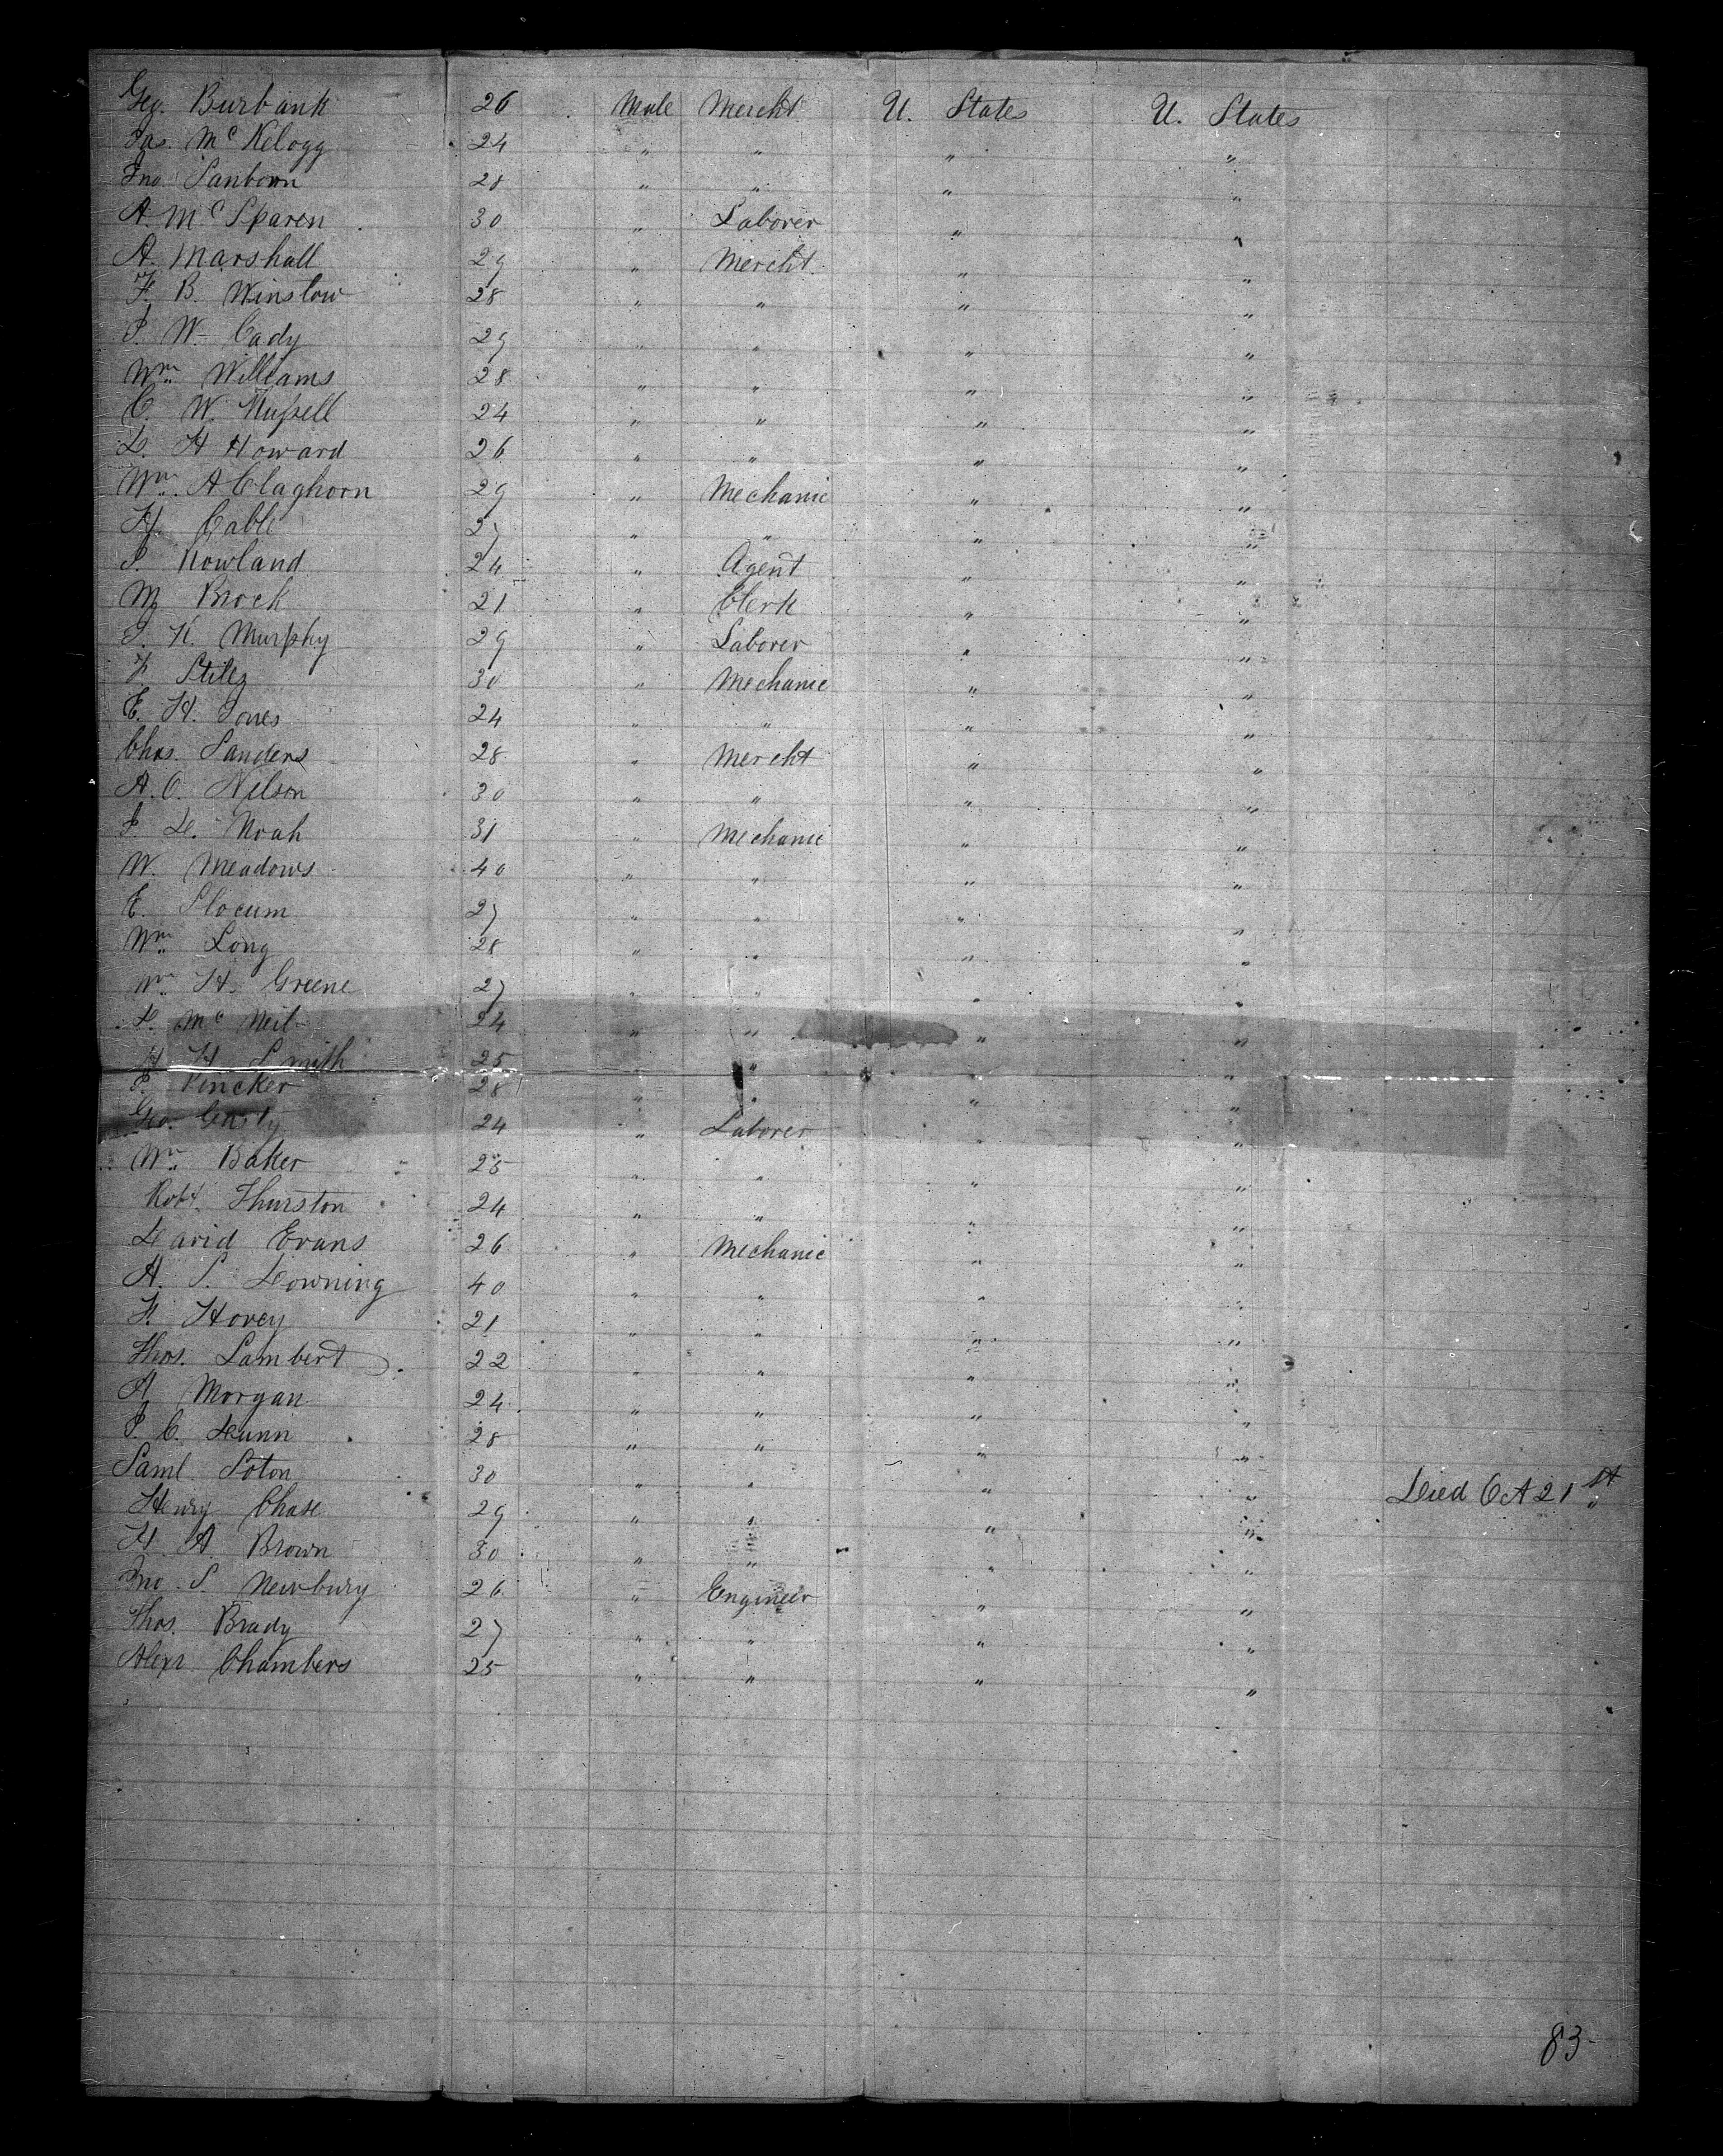 Geo. Burbank 26 Male Mercht U. States U. States
Jas. Mc Kelogg 24 " " " "
Jno Sanborn 28 " " " "
A. Mc Sparen 30 " Laborer " "
A. Marshall 29 " Mercht. " "
F. B. Winslow 28 " " " "
J W. Cady 29 " " " "
Wm Williams 28 " " " "
C. W. Russell 24 " " " "
D. H Howard 26 " " " "
Wm. A Claghorn 29 " Mechanic " "
H. Cable 27 " " " "
J. Rowland 24 " Agent " "
M Brock 21 " Clerk " "
J. K. Murphy 29 " Laborer " "
F. Stiles 30 " Mechanic " "
E. H. Jones 24 " " " "
Chas. Sanders 28 " Mercht " "
A. O. Nelson 30 " " " "
J D. Noah 31 " Mechanic " "
W. Meadows 40 " " " "
E. Slocum 27 " " " "
Wm Long 28 " " " "
Wm H. Greene 27 " " " "
D. Mc Neil 24 " " " "
H H Smith 25 " "
J. Pencker 28 " " " "
Geo. Carty 24 " Laborer " "
Wm Baker 25 " " " "
Robt. Thurston 24 " " " "
David Evans 26 " Mechanic " "
A. S. Downing 40 " " " "
F. Hovey 21 " " " "
Thos. Lambert 22 " " " "
A Morgan 24 " " " "
J. C. Dunn 28 " " " "
Saml. Soton 30 " " " " Died Oct 21st
Henry Chase 29 " " " "
H. A Brown 30 " " " "
Jno. S. Newbury 26 " Engineer " "
Thos. Brady 27 " " " "
Alexr. Chambers 25 " " " "
83